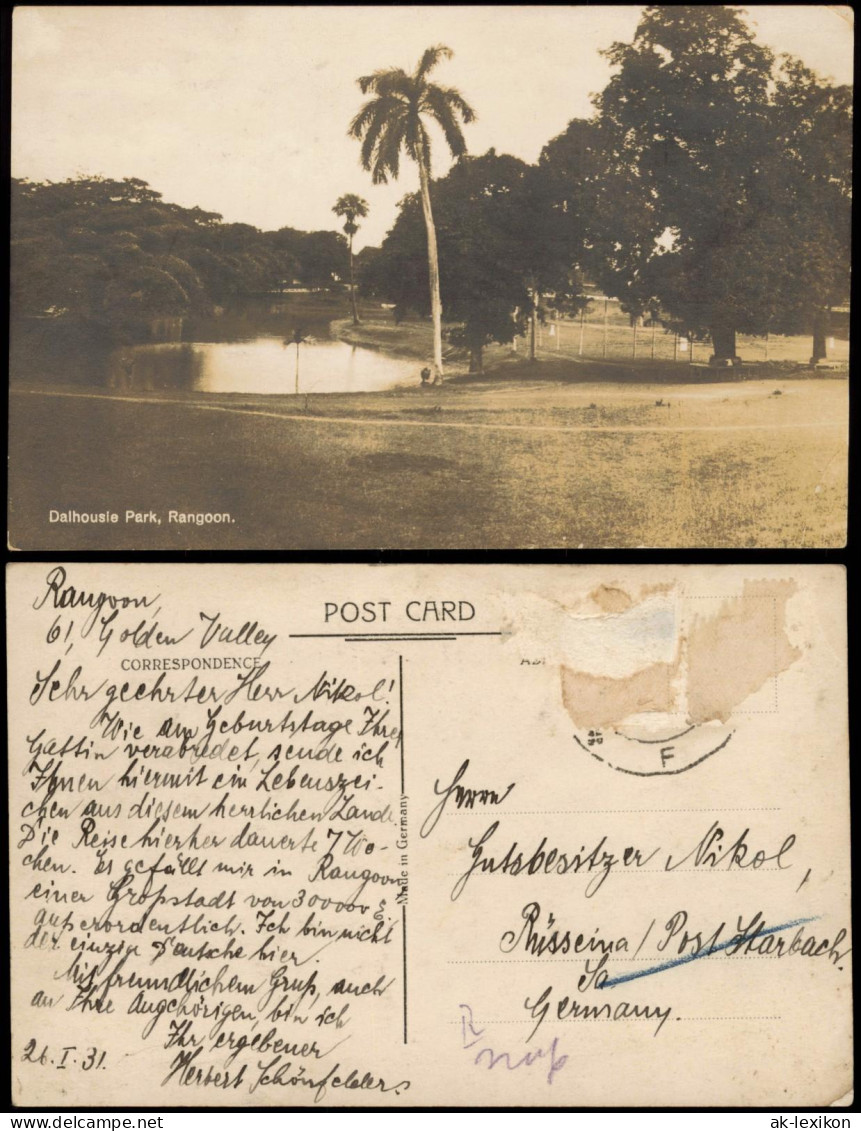 Dalhousie Park, Rangoon.
Rangoon,
61, Golden Valley
POST CARD
CORRESPONDENCE
Sehr geehrter Herr Nikol!
Wie am Geburtstage Ihrer
Gattin verabredet, sende ich
Ihnen hiermit ein Lebenszei-
chen aus diesem herrlichen Lande.
Die Reise hierher dauerte 7 Wo-
chen. Es gefällt mir in Rangoon
einer Großstadt von 300000 E.
außerordentlich. Ich bin nicht
der einzige Deutsche hier.
Mit freundlichem Gruß, auch
an Ihre Angehörigen, bin ich
Ihr ergebener
26.I.31. Herbert Schönfelder.
Made in Germany
F
Herrn
Gutsbesitzer Nikol,
Rüsseina / Post Starbach.
Sa
Germany.
ak-lexikon